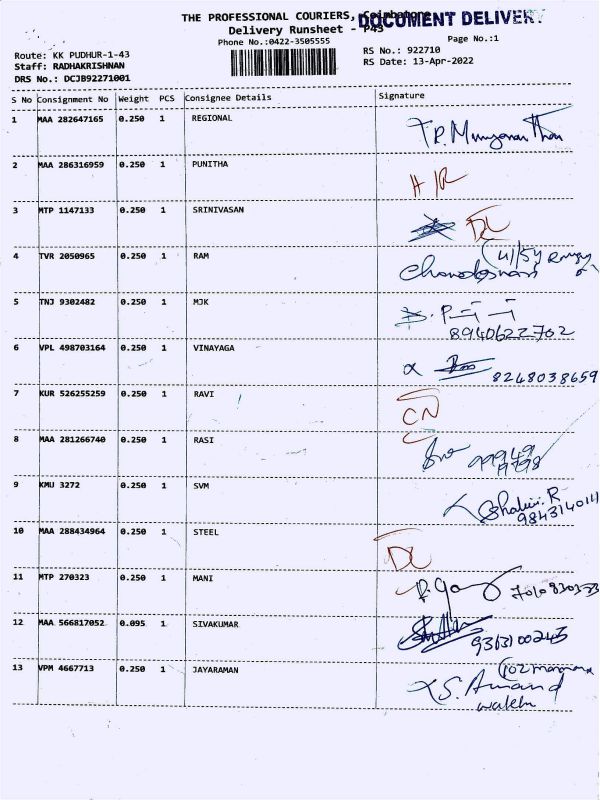 THE PROFESSIONAL COURIERS, Coimbatore
DOCUMENT DELIVERY
Delivery Runsheet - P43
Phone No.:0422-3505555
Page No.:1
Route: KK PUDHUR-1-43
RS No.: 922710
Staff: RADHAKRISHNAN
RS Date: 13-Apr-2022
DRS No.: DCJB92271001
S No Consignment No Weight PCS Consignee Details Signature
1 MAA 282647165 0.250 1 REGIONAL
2 MAA 286316959 0.250 1 PUNITHA
3 MTP 1147133 0.250 1 SRINIVASAN DL
4 TVR 2050965 0.250 1 RAM
5 TNJ 9302482 0.250 1 MJK
8940622702
6 VPL 498703164 0.250 1 VINAYAGA
8248038659
7 KUR 526255259 0.250 1 RAVI
CN
8 MAA 281266740 0.250 1 RASI
9 KMU 3272 0.250 1 SVM
Shalini. R
10 MAA 288434964 0.250 1 STEEL
DL
11 MTP 270323 0.250 1 MANI
12 MAA 566817052 0.095 1 SIVAKUMAR
13 VPM 4667713 0.250 1 JAYARAMAN
S. Anand